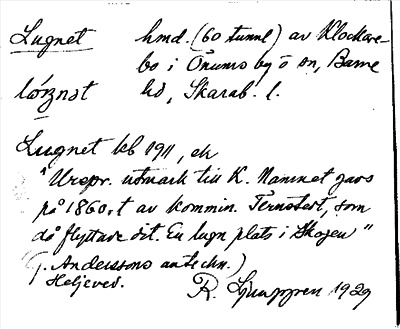 Lugnet hmd. (60 tunnl) av Klockare-
bo i Önums by o sn, Barne
hd, Skarab. l.
Lugnet kb 1911, ek
"Urspr. utmark till K. Namnet gavs
på 1860-t av kommin. Ternstedt, som
då flyttade dit. En lugn plats i skogen"
(J. Anderssons anteckn.)
Heljeved.
R. Ljunggren 1929